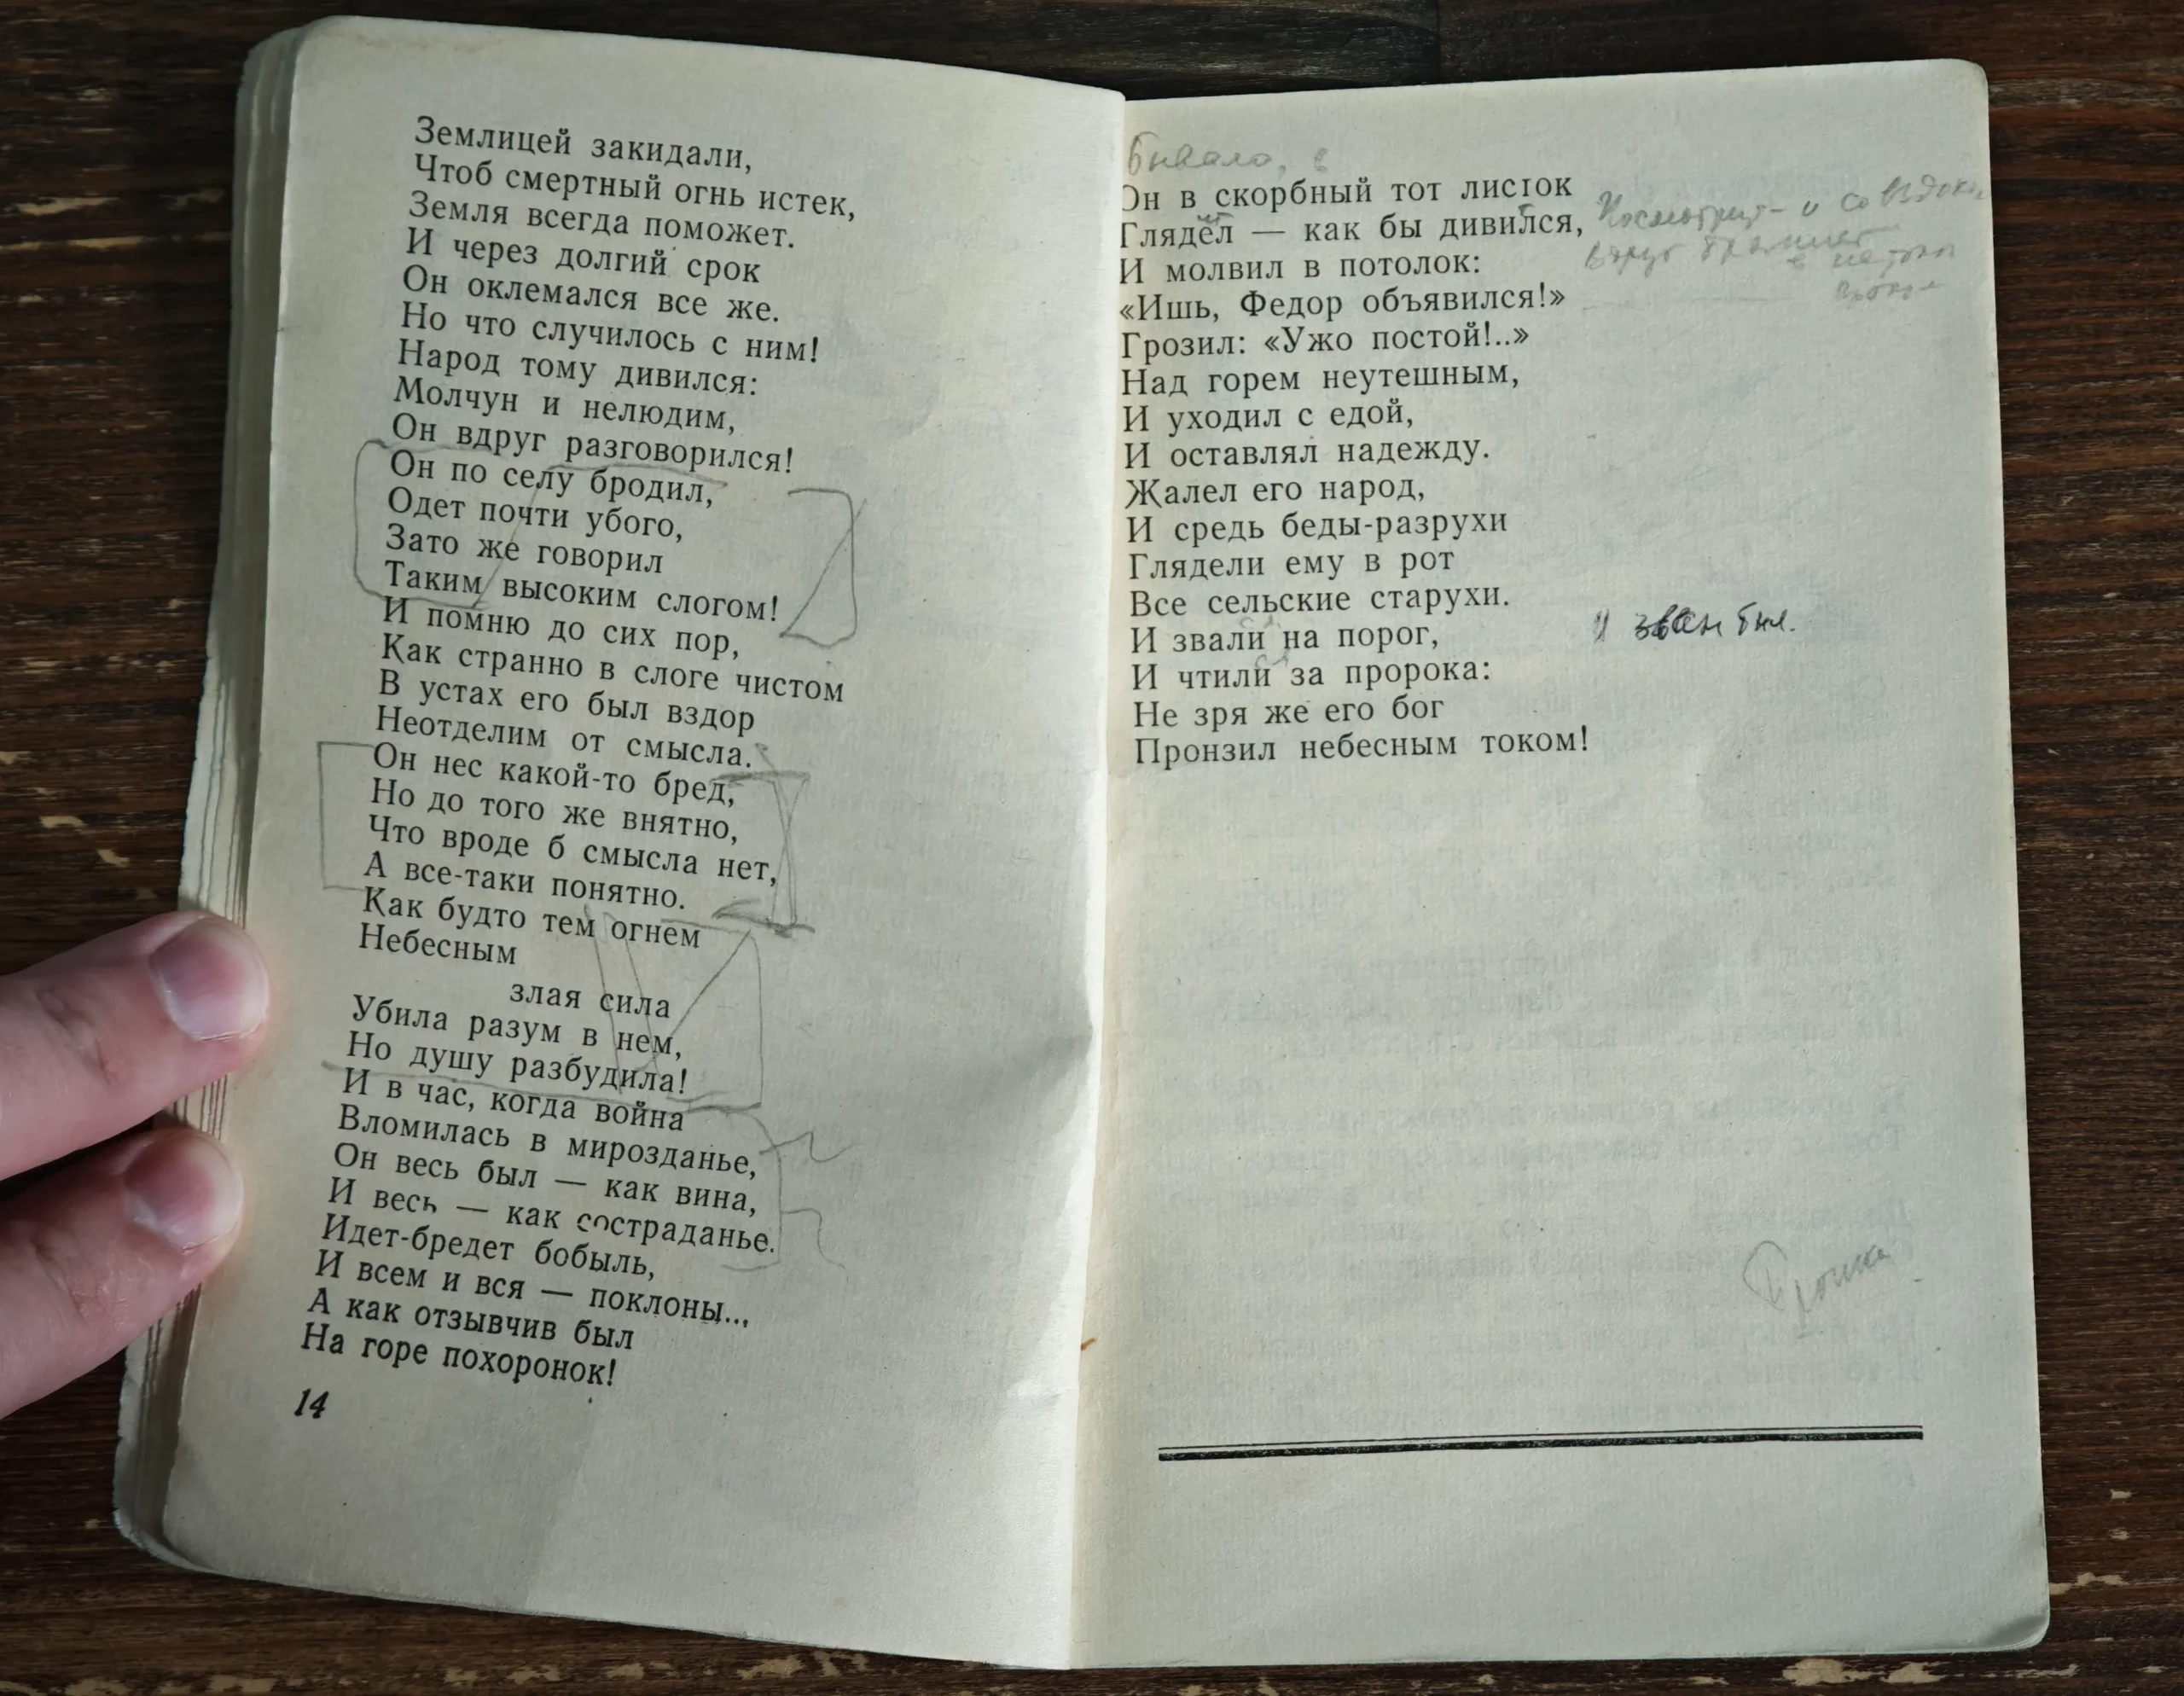 Землицей закидали,
Чтоб смертный огнь истек,
Земля всегда поможет.
И через долгий срок
Он оклемался все же.
Но что случилось с ним!
Народ тому дивился:
Молчун и нелюдим,
Он вдруг разговорился!
Он по селу бродил,
Одет почти убого,
Зато же говорил
Таким высоким слогом!
И помню до сих пор,
Как странно в слоге чистом
В устах его был вздор
Неотделим от смысла.
Он нес какой-то бред,
Но до того же внятно,
Что вроде б смысла нет,
А все-таки понятно.
Как будто тем огнем
Небесным
злая сила
Убила разум в нем,
Но душу разбудила!
И в час, когда война
Вломилась в мирозданье,
Он весь был — как вина,
И весь — как состраданье.
Идет-бредет бобыль,
И всем и вся — поклоны...
А как отзывчив был
На горе похоронок!
14
Бывало, в
Он в скорбный тот листок
Глядел — как бы дивился,
И молвил в потолок:
«Ишь, Федор объявился!»
Грозил: «Ужо постой!..»
Над горем неутешным,
И уходил с едой,
И оставлял надежду.
Жалел его народ,
И средь беды-разрухи
Глядели ему в рот
Все сельские старухи.
И звали на порог,
И чтили за пророка:
Не зря же его бог
Пронзил небесным током!
Посмотрит- и со вздохом
вдруг
И зван был.
Прошка